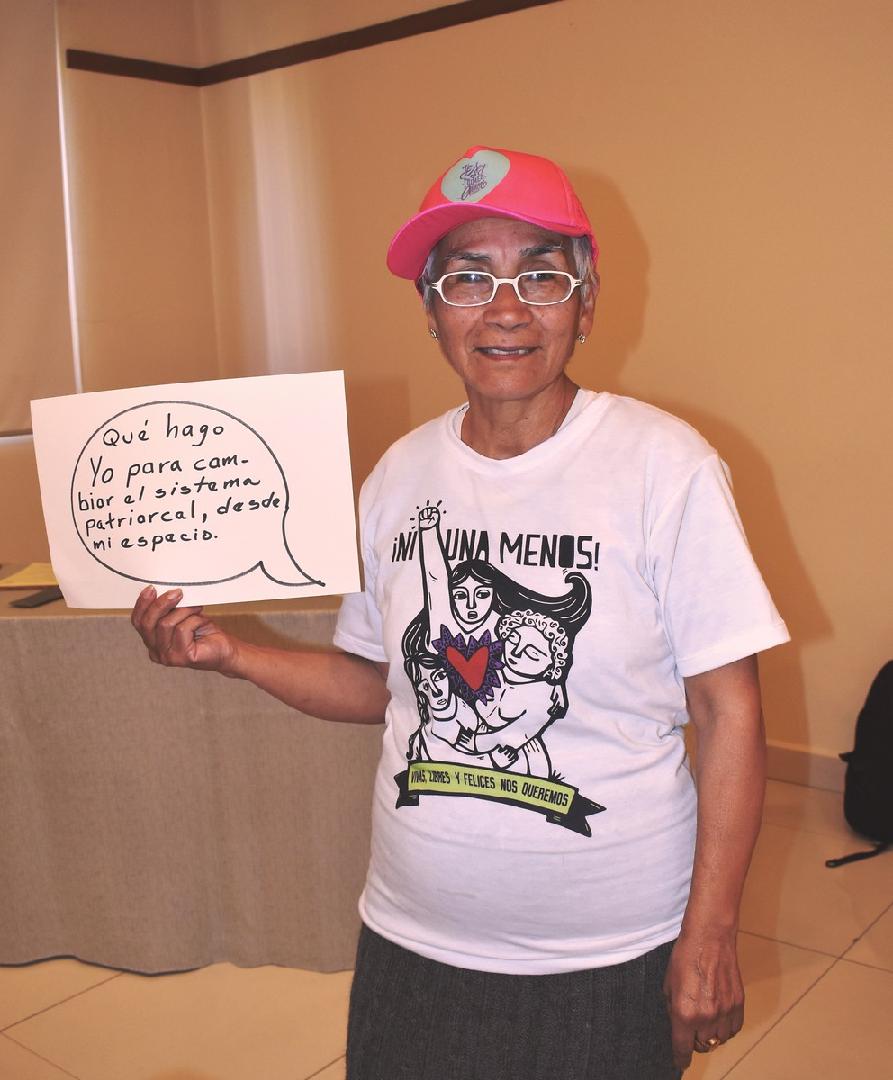 Qué hago
Yo para cam-
biar el sistema
patriarcal, desde
mi espacio.
¡NI UNA MENOS!
VIVAS, LIBRES Y FELICES NOS QUEREMOS